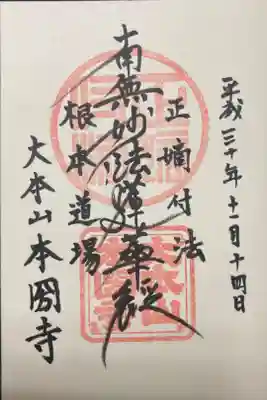 平成三十年十一月十四日
正嫡付法
南無妙法蓮華経
根本道場
大本山本圀寺